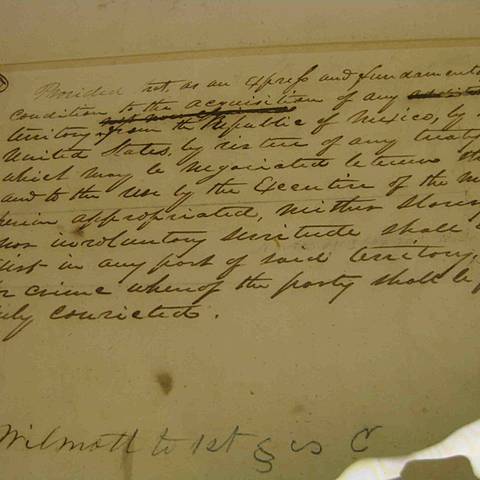 Provided, that, as an express and fundamental
condition to the acquisition of any
territory from the Republic of Mexico, by
United States, by virtue of any treaty
which may be negotiated between the
and to the use by the Executive of the m
herein appropriated, neither slavery
nor involuntary servitude shall e
xist in any part of said territory,
or crime whereof the party shall be f
uly convicted.
Wilmott to 1st § is C